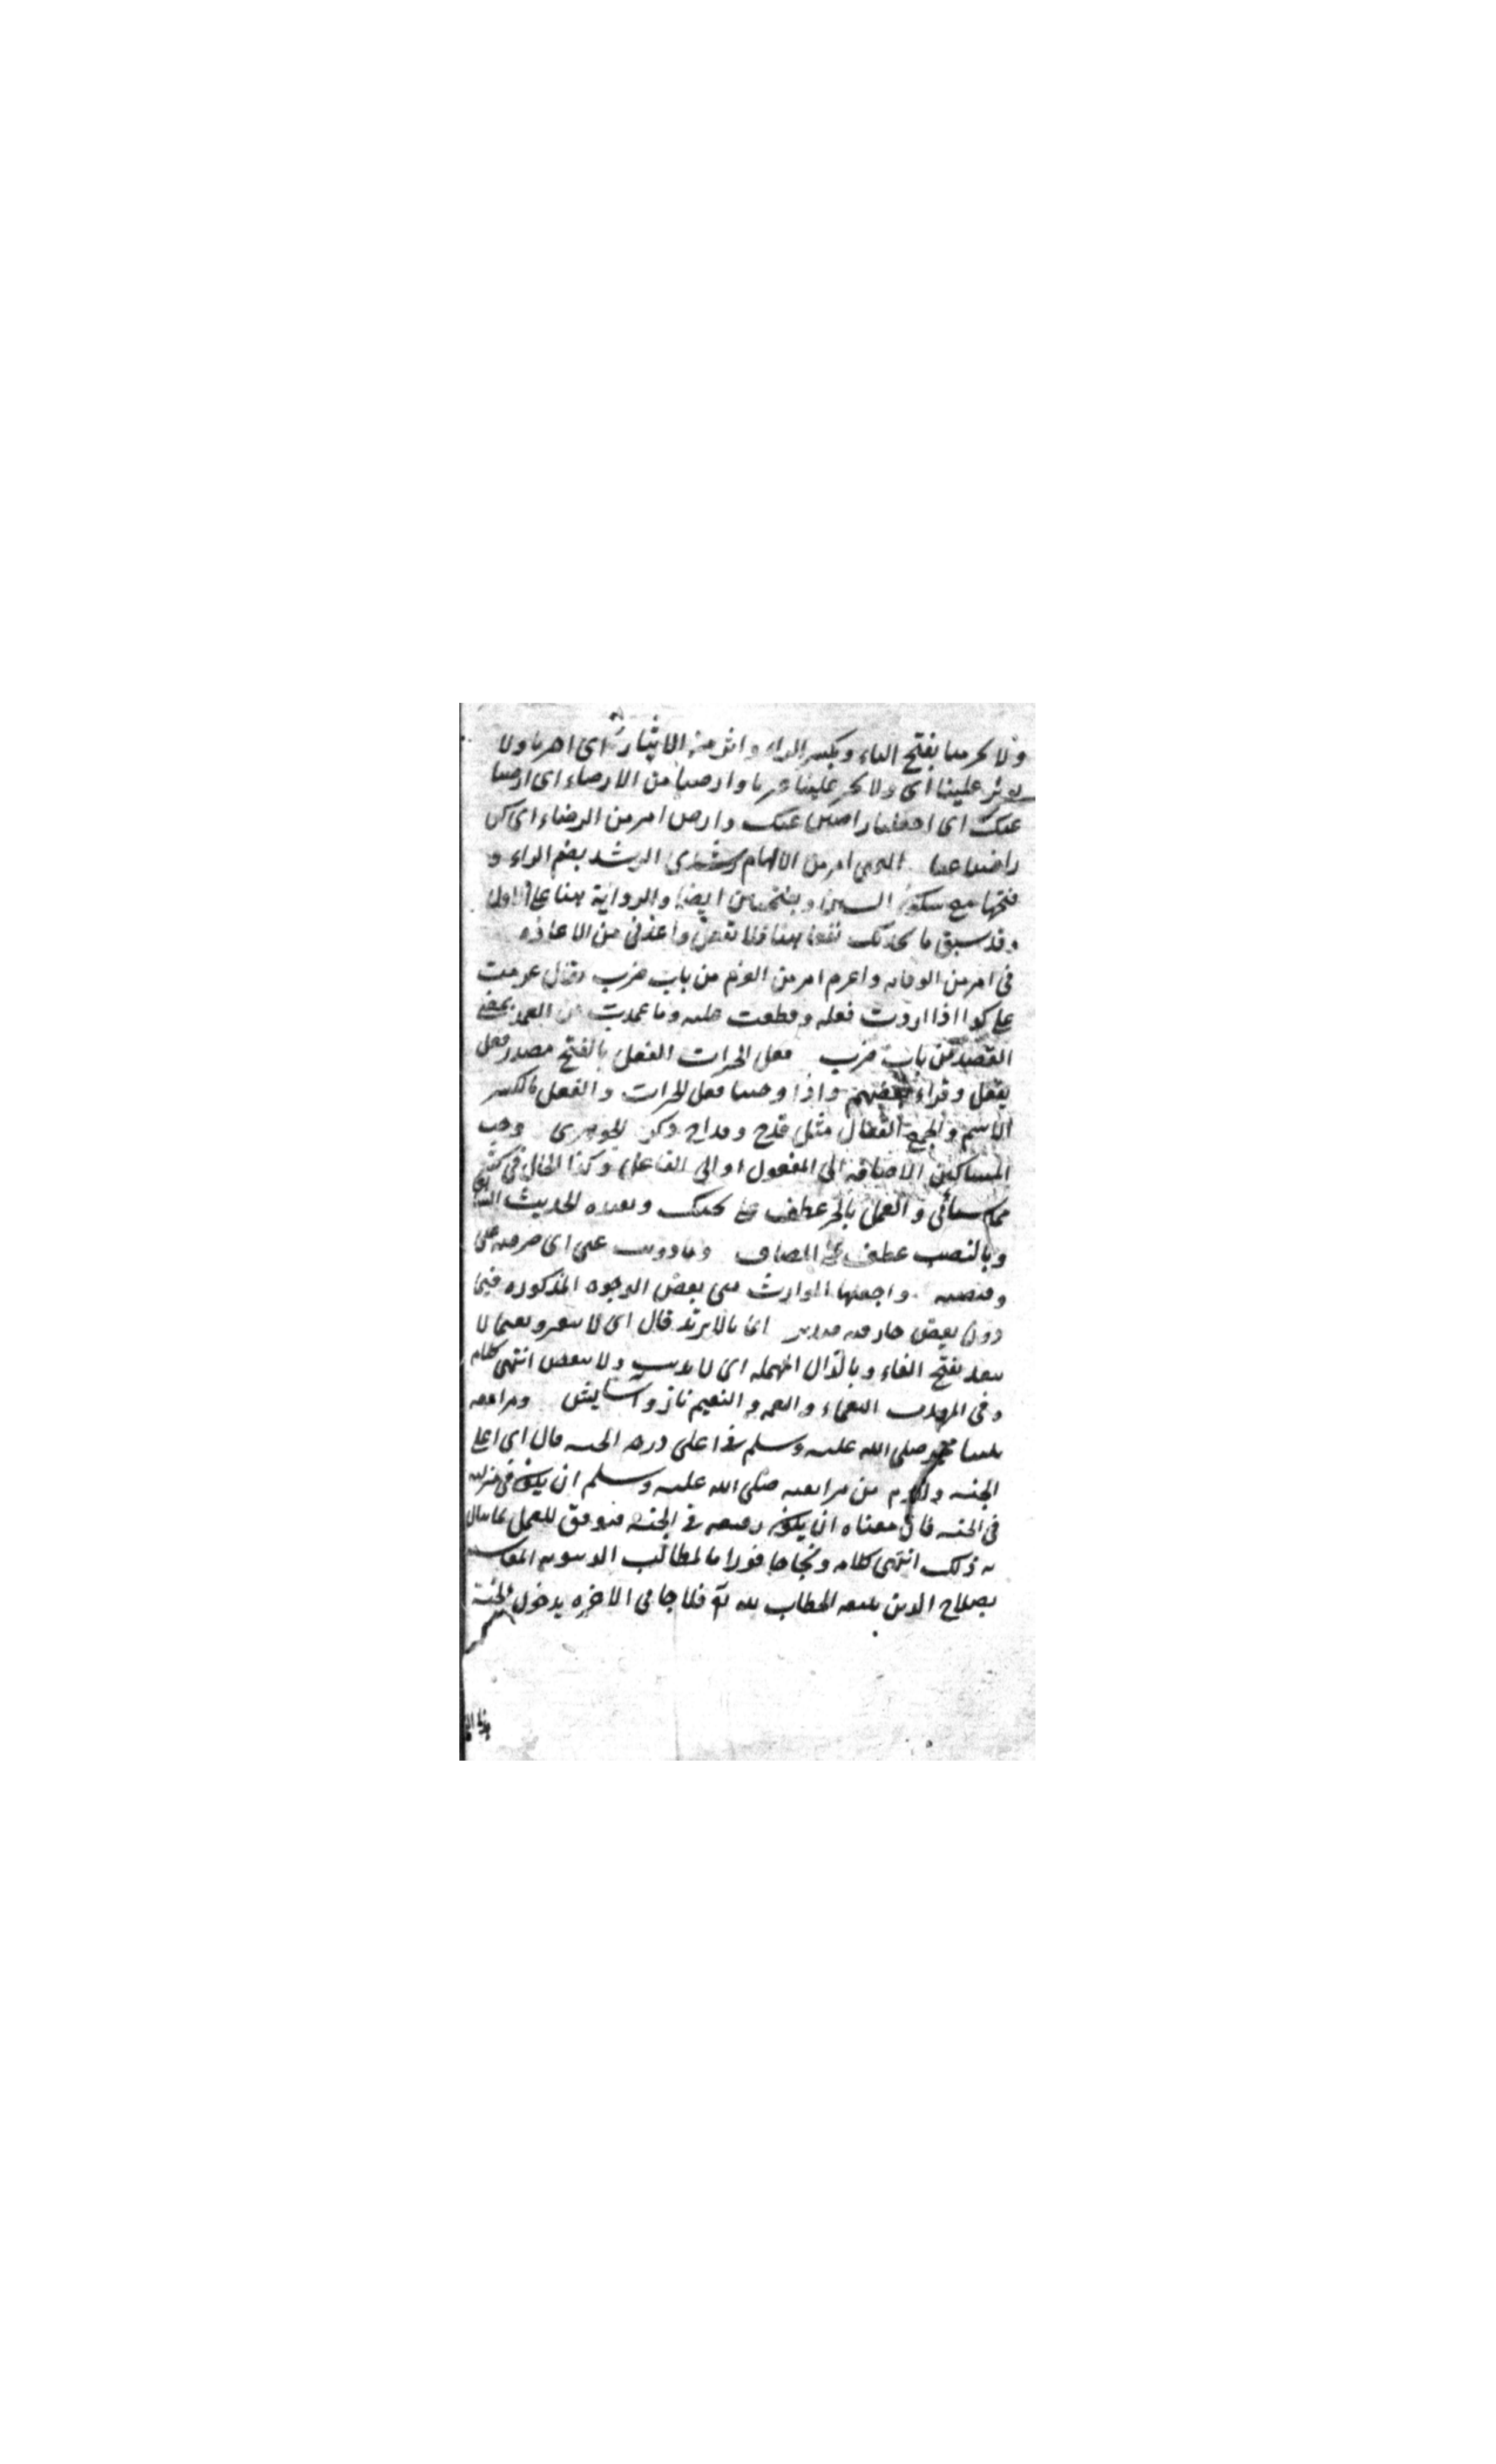 ولا تحرمنا بفتح التاء وبكسر الراء واثر من الايثار اى اخترنا ولا
توثر علينا اى ولا تختر علينا غيرنا وارضنا من الارضاء اى ارضنا
عنك اى اجعلنا راضين عنك وارض امر من الرضاء اى كن
راضيا عنا الهمنى امر من الالهام رشدى الرشد بضم الراء و
فتحها مع سكون الشين وبفتحتين ايضا والرواية هنا على الاول
وقد سبق ما يجديك نفعا هنا فلا تغفل واعذنى من الاعاذه
قنى امر من الوقايه واعزم امر من العزم من باب ضرب يقال عزمت
على كذا اذا اردت فعله وقطعت عليه وما عمدت من العمد بمعنى
القصد من باب ضرب فعل الخيرات الفعل بالفتح مصدر فعل
يفعل وقراء بعضهم واذا وحينا فعل الخيرات والفعل بالكسر
الاسم والجمع الفعال مثل قدح وقداح ذكره الجوهرى وحب
المساكين الاضافه الى المفعول او الى الفاعل وكذا الحال فى
مما سيأتى والعمل بالجر عطف على حبك ويعيده الحديث
وبالنصب عطف على المضاف وما زويت عنى اى صرفته عنى
وقبضته واجعلها الوارث يجى بعض الوجوه المذكوره فيما
دون بعض ايمانا لا يرتد قال اى لا يتغير ونعيما لا
ينفد بفتح الفاء وبالدال المهمله اى لا يذهب ولا ينقص انتهى كلامه
وفى المهذب النعماء والنعمه والنعيم ناز وآسايش ومرافقه
نبينا محمد صلى الله عليه وسلم فى اعلى درجه الجنه قال اى اعلى
الجنه ولا يلزم من مرافقته صلى الله عليه وسلم ان يكون فى منزلته
فى الجنه قال معناه ان يكون رفيقه فى الجنه فيوفق للعمل
به ذلك انتهى كلامه ونجاحا فوزا بالمطالب الدنيويه
بصلاح الدين يتبعه الخطاب لله تع فلاحا فى الاخره بدخول الجنة